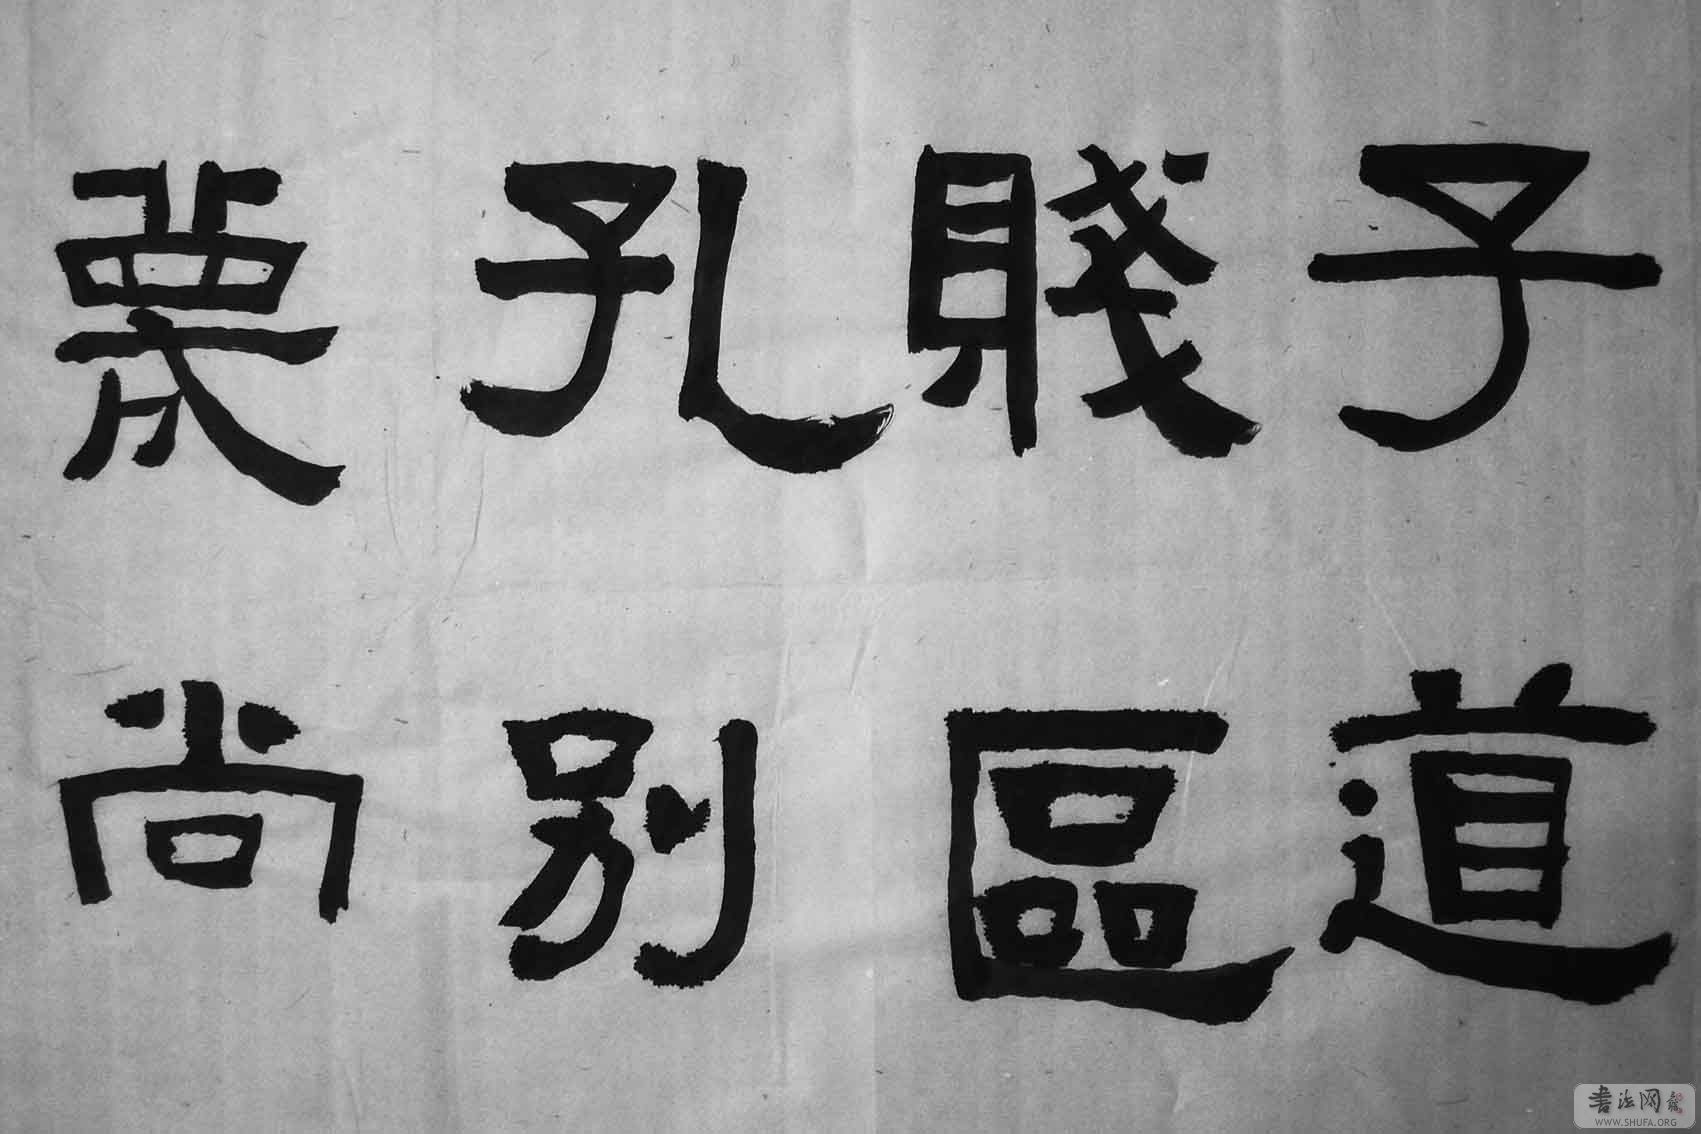 子賤孔蔑
道區別尚
书法网
WWW.SHUFA.ORG